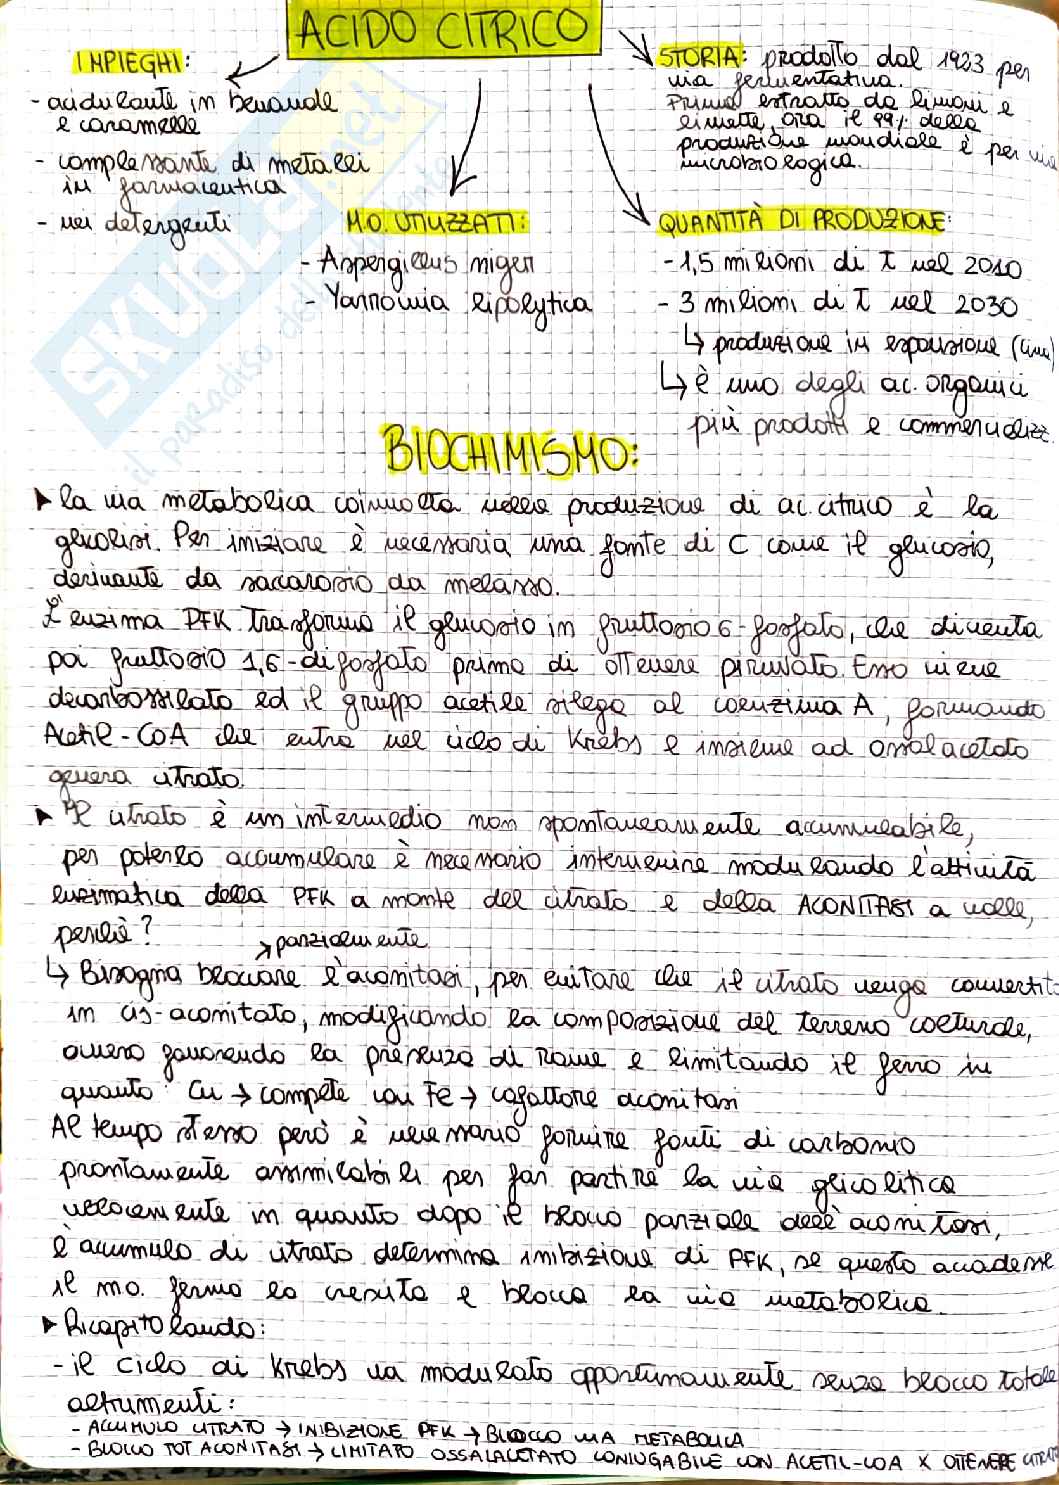 ACIDO CITRICO
IMPIEGHI:
- acidulante in bevande
e caramelle
- complessante di metalli
in farmaceutica
- nei detergenti
M.O. UTILIZZATI:
- Aspergillus niger
- Yarrowia lipolytica
STORIA: prodotto dal 1923 per
via fermentativa.
Prima estratto da limoni e
limette, ora il 99% della
produzione mondiale è per via
microbiologica.
QUANTITÀ DI PRODUZIONE:
- 1,5 milioni di T nel 2010
- 3 milioni di T nel 2030
↳ produzione in espansione
↳ è uno degli ac. organici
più prodotti e commercializz.
SKUOLA.net
il paradiso dello studente
BIOCHIMISMO:
▸ la via metabolica coinvolta nella produzione di ac. citrico è la
glicolisi. Per iniziare è necessaria una fonte di C come il glucosio,
derivante da saccarosio da melasso.
L'enzima PFK trasforma il glucosio in fruttosio 6-fosfato, che diventa
poi fruttosio 1,6-difosfato prima di ottenere piruvato. Esso viene
decarbossilato ed il gruppo acetile si lega al coenzima A, formando
Acetil-CoA che entra nel ciclo di Krebs e insieme ad ossalacetato
genera citrato.
▸ Il citrato è un intermedio non spontaneamente accumulabile,
per poterlo accumulare è necessario intervenire modulando l'attività
enzimatica della PFK a monte del citrato e della ACONITASI a valle,
perché?
→ parzialmente
↳ Bisogna bloccare l'aconitasi, per evitare che il citrato venga convertito
in cis-aconitato, modificando la composizione del terreno colturale,
ovvero favorendo la presenza di Rame e limitando il ferro in
quanto: Cu → compete con Fe → cofattore aconitasi
Al tempo stesso però è necessario fornire fonti di carbonio
prontamente assimilabili per far partire la via glicolitica
velocemente in quanto dopo il blocco parziale dell'aconitasi,
l'accumulo di citrato determina inibizione di PFK, se questo accadesse
il mo. ferma la crescita e blocca la via metabolica.
▸ Ricapitolando:
- il ciclo di Krebs va modulato opportunamente senza blocco totale
altrimenti:
- ACCUMULO CITRATO → INIBIZIONE PFK → BLOCCO VIA METABOLICA
- BLOCCO TOT ACONITASI → LIMITATO OSSALACETATO CONIUGABILE CON ACETIL-COA X OTTENERE CITRATO